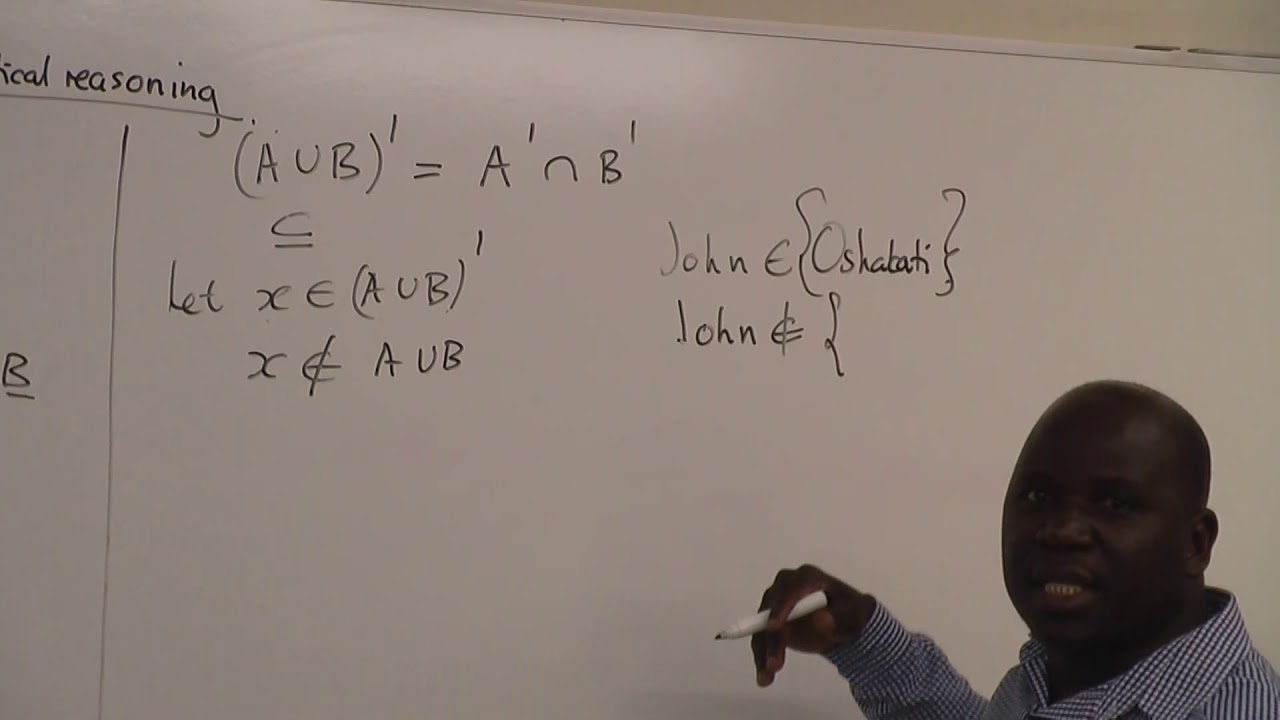 ical reasoning
(A ∪ B)' = A' ∩ B'
⊆
Let x ∈ (A ∪ B)'
x ∉ A ∪ B
B
John ∈ {Oshakati}
John ∉ {